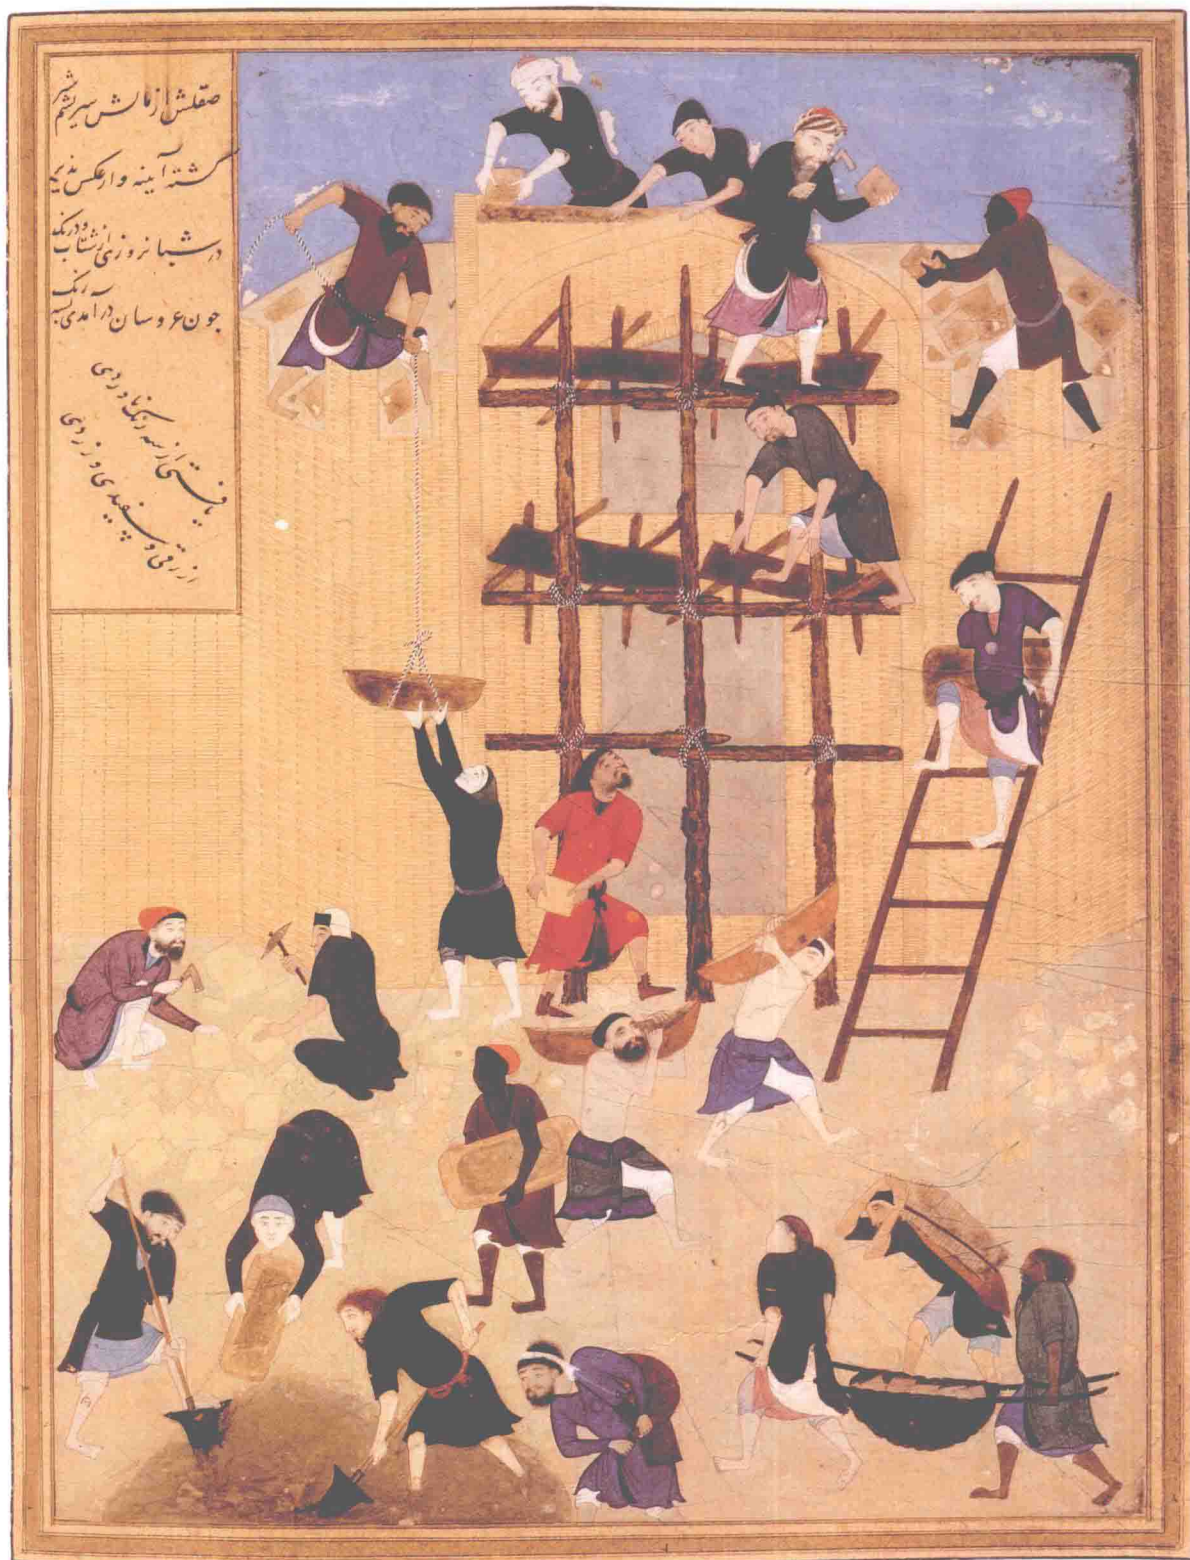 صقلش از مالش سریشم و شیر
کشته آینه وار عکس پذیر
در شبانروزی از شتاب و درنک
جون عروسان درآمدی بسه رنک
یافتی از سه رنک ناوردی
ازرقی و سفیدی و زردی